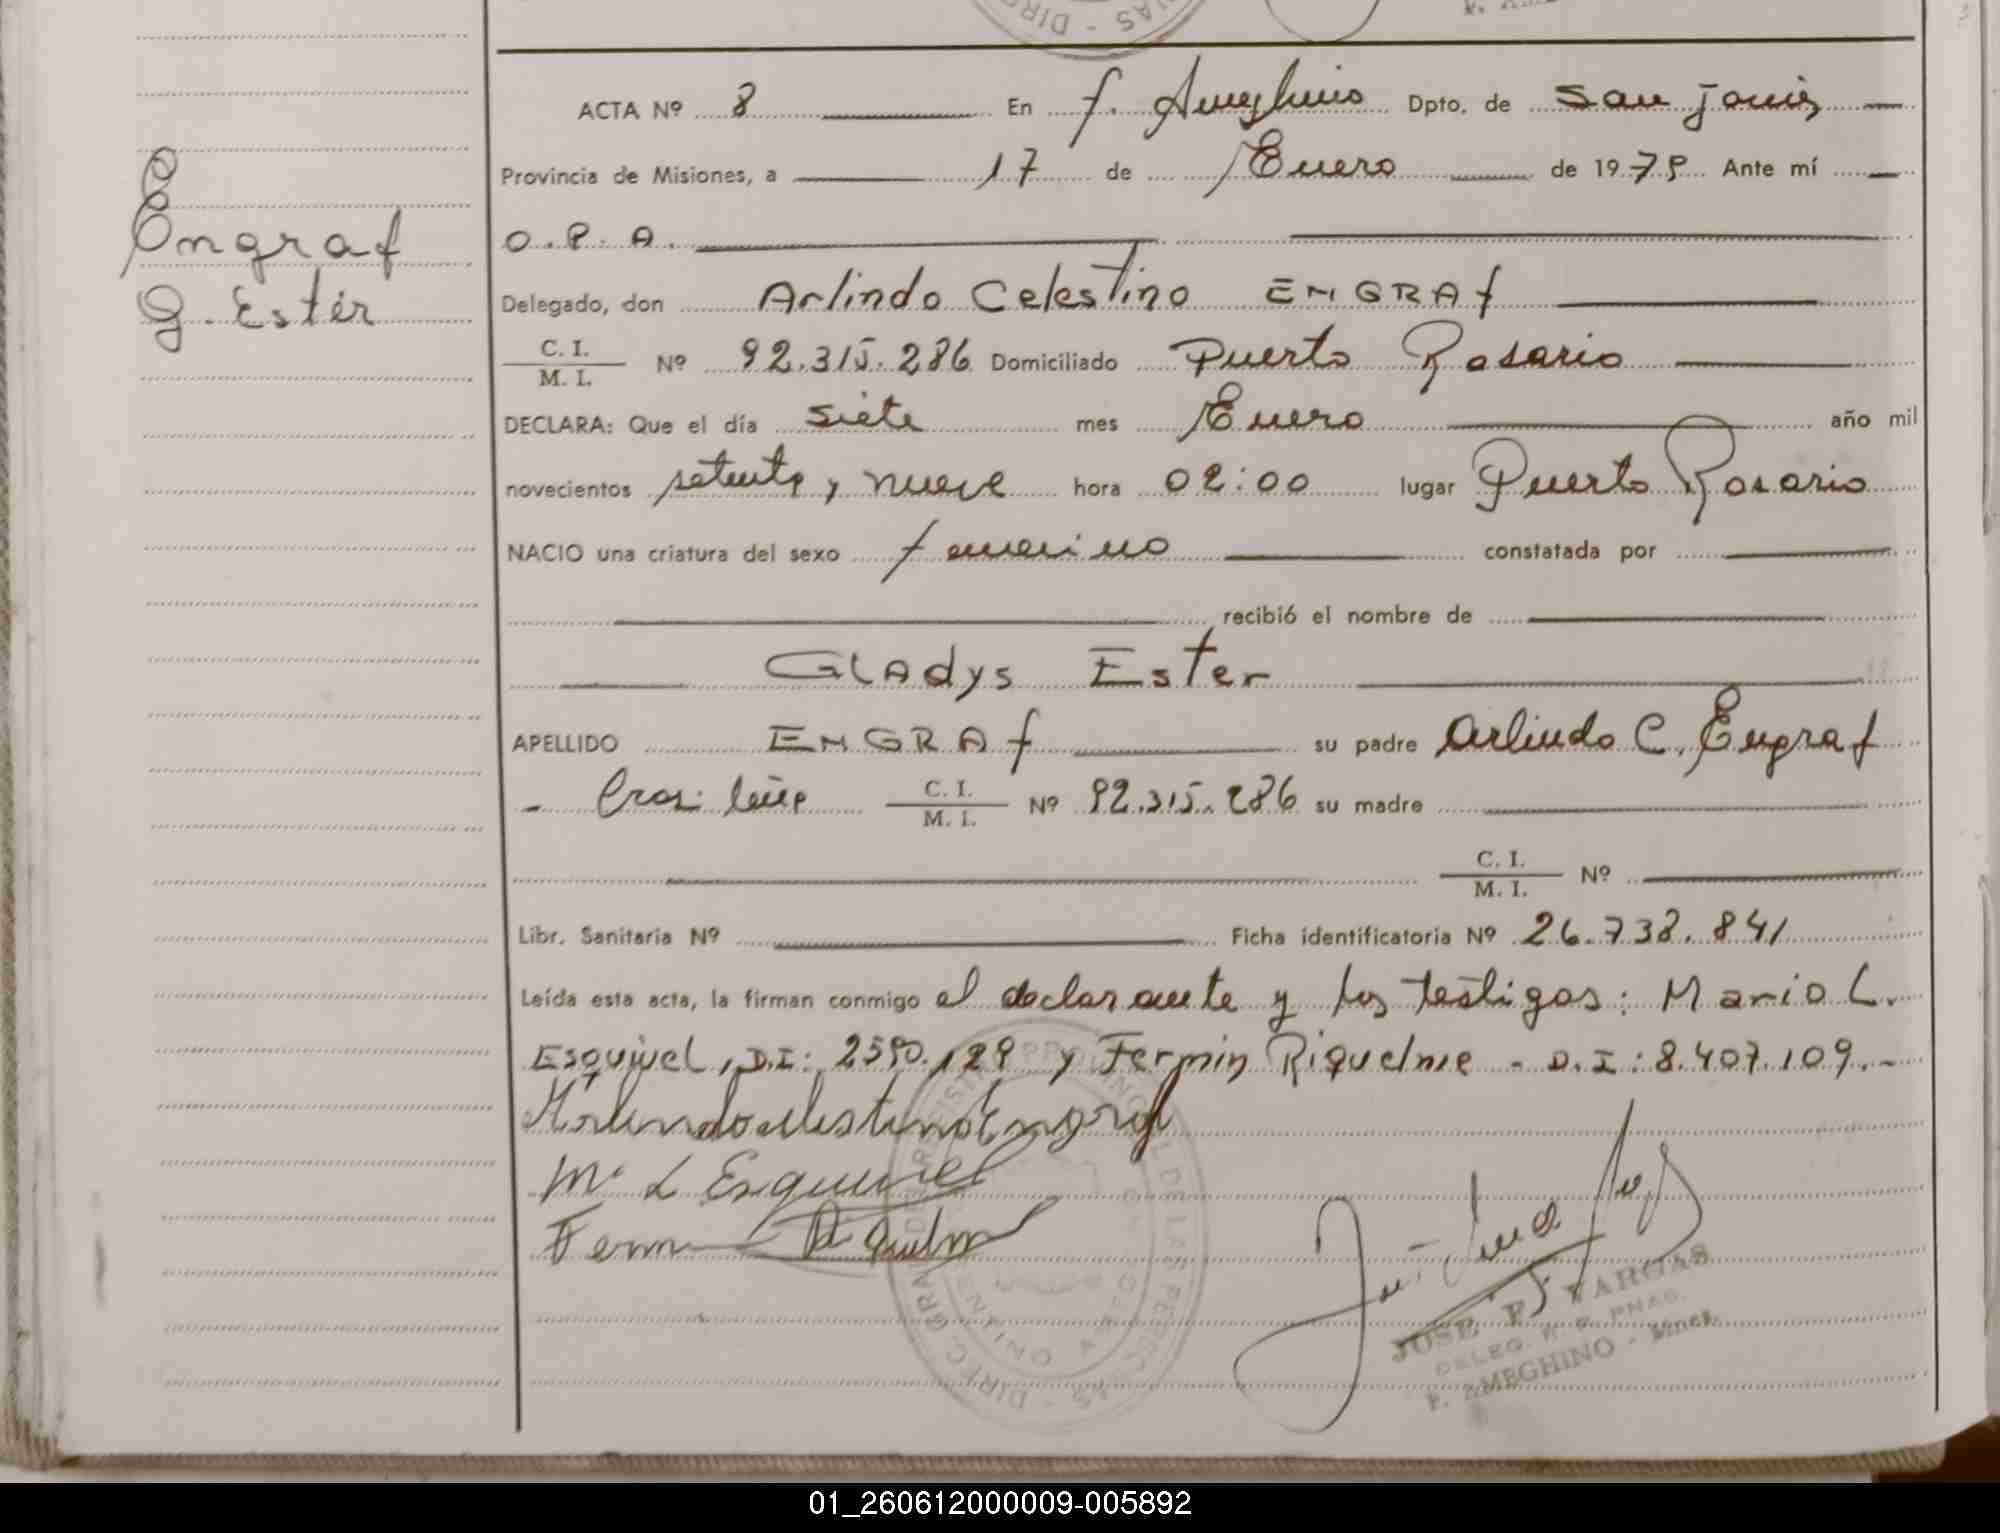 ACTA Nº 8 En F. Ameghino Dpto. de San Javier
Provincia de Misiones, a 17 de Enero de 1979. Ante mí
O.P.A.
Engraf
G. Ester
Delegado, don Arlindo Celestino ENGRAF
C. I.
M. I.
Nº 92.315.286 Domiciliado Puerto Rosario
DECLARA: Que el día siete mes Enero año mil
novecientos setenta y nueve hora 02:00 lugar Puerto Rosario
NACIO una criatura del sexo femenino constatada por
recibió el nombre de
GLAdys Ester
APELLIDO ENGRAF su padre Arlindo C. Engraf
C. I.
M. I.
Nº 92.315.286 su madre
C. I.
M. I.
Nº
Libr. Sanitaria Nº Ficha identificatoria Nº 26.738.841
Leída esta acta, la firman conmigo el declarante y los testigos: Mario L.
Esquivel, D.I: 2590.129 y Fermin Riquelme - D.I: 8.407.109.-
Arlindo Celestino Engraf
M. L Esquivel
Fermin Riquelm
JOSE F. VARGAS
DELEG. R. P. PNAS.
F. AMEGHINO - Mnes.
01_260612000009-005892